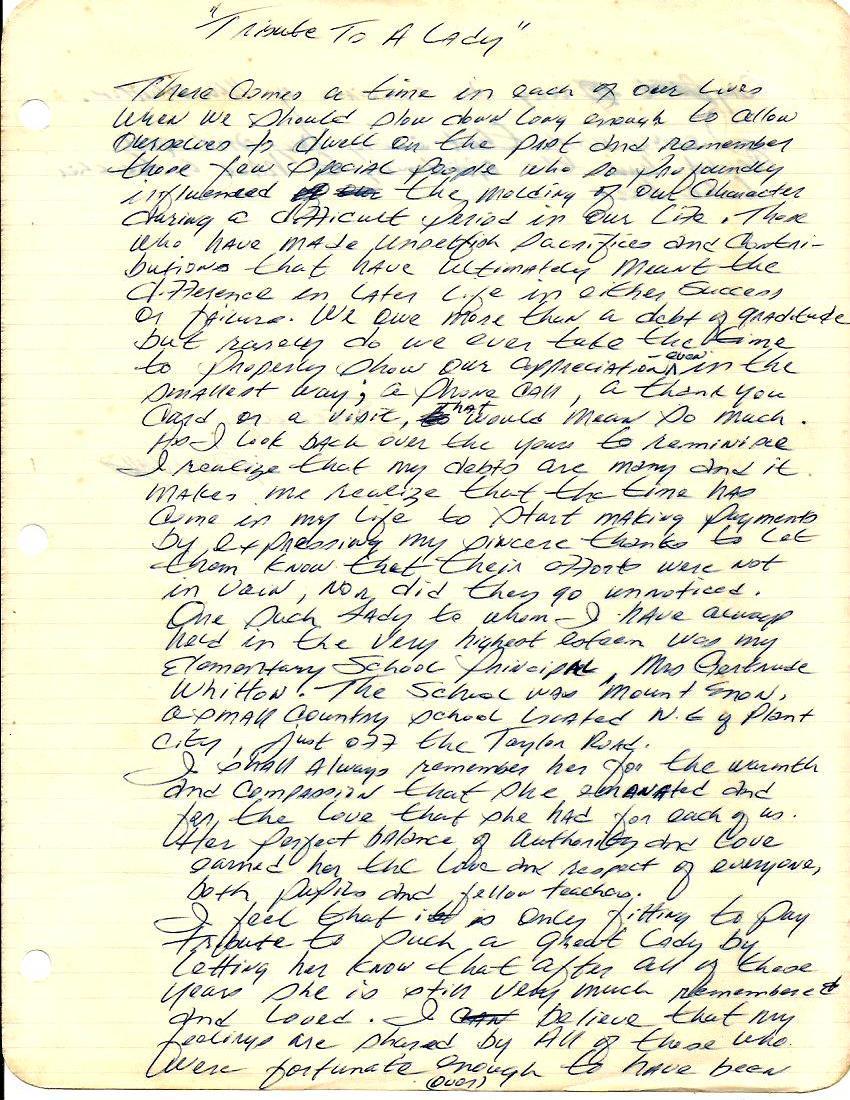 "Tribute To A Lady"
There Comes a time in each of our Lives
When we should slow down long enough to allow
Ourselves to dwell on the past and remember
those few special people who so profoundly
influenced the molding of our Character
during a difficult period in our Life. Those
who have made unselfish sacrifices and Contri-
butions that have ultimately meant the
difference in Later Life in either Success
or failure. We owe more than a debt of graditude
but rarely do we ever take the time
to properly show our appreciation - even in the
smallest way; a phone call, a thank you
Card or a visit, that would mean so much.
As I look back over the years to reminisce
I realize that my debts are many and it
makes me realize that the time has
Come in my Life to start making payments
by expressing my sincere thanks to Let
them know that their efforts were not
in vain, nor did they go unnoticed.
One such Lady to whom I have always
held in the very highest esteem was my
Elementary School Principal, Mrs Gertrude
Whitton. The School was Mount Enon,
a small Country school Located N.E of Plant
City, just off the Taylor Road.
I shall always remember her for the warmth
and Compassion that she emanated and
for the Love that she had for each of us.
Her perfect balance of authority and Love
earned her the Love and respect of everyone,
both pupils and fellow teachers.
I feel that it is only fitting to pay
tribute to such a great Lady by
Letting her know that after all of these
years she is still very much remembered
and Loved. I believe that my
feelings are shared by all of those who
were fortunate enough to have been
(over)